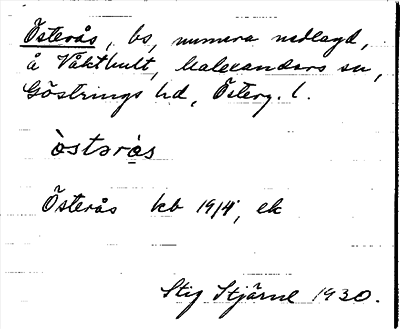 Österås, bs, numera nedlagd,
å Våkthult, Malexanders sn,
Göstrings hd, Österg. l.
òstərå̀s
Österås kb 1914, ek
Stig Stjärne 1930.